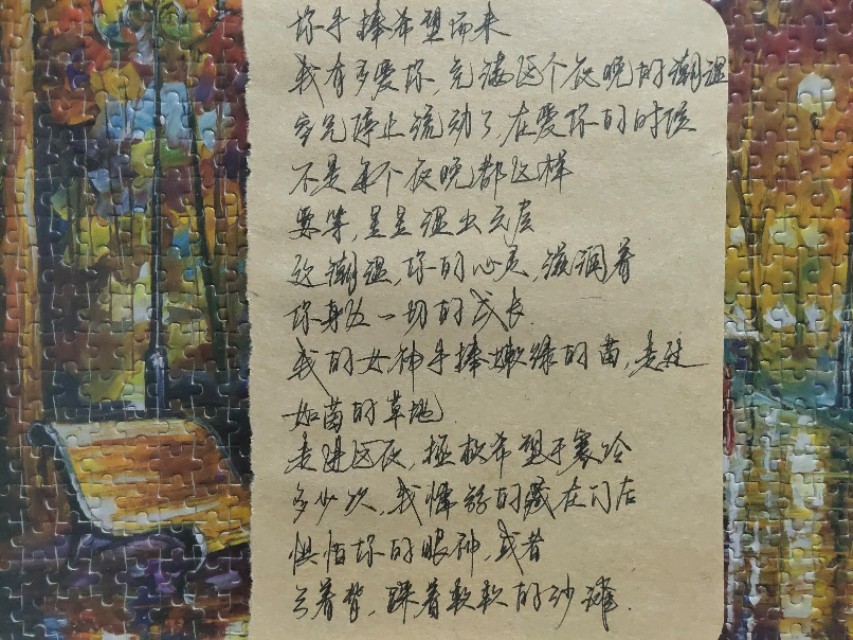 你手捧希望而来
我有多爱你,充满这个夜晚的潮湿
空气停止流动了,在爱你的时候
不是每个夜晚都这样
要等,星星湿出云层
这潮湿,你的心灵,滋润着
你身边一切的成长.
我的女神手捧嫩绿的苗,走进
如茵的草地
走进这夜,拯救希望于寒冷
多少次,我悸动的藏在门后
惧怕你的眼神,或者
弓着背,踩着软软的沙滩.